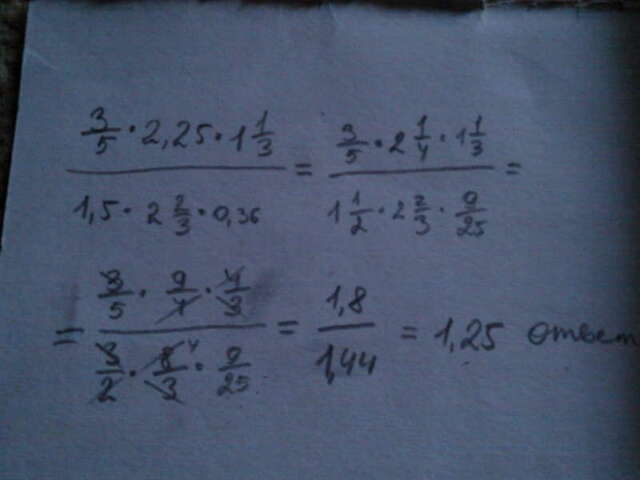 3/5 · 2,25 · 1 1/3 / 1,5 · 2 2/3 · 0,36 = 3/5 · 2 1/4 · 1 1/3 / 1 1/2 · 2 2/3 · 9/25 =
= 3/5 · 9/4 · 4/3 / 3/2 · 8/3 · 9/25 = 1,8 / 1,44 = 1,25 Ответ